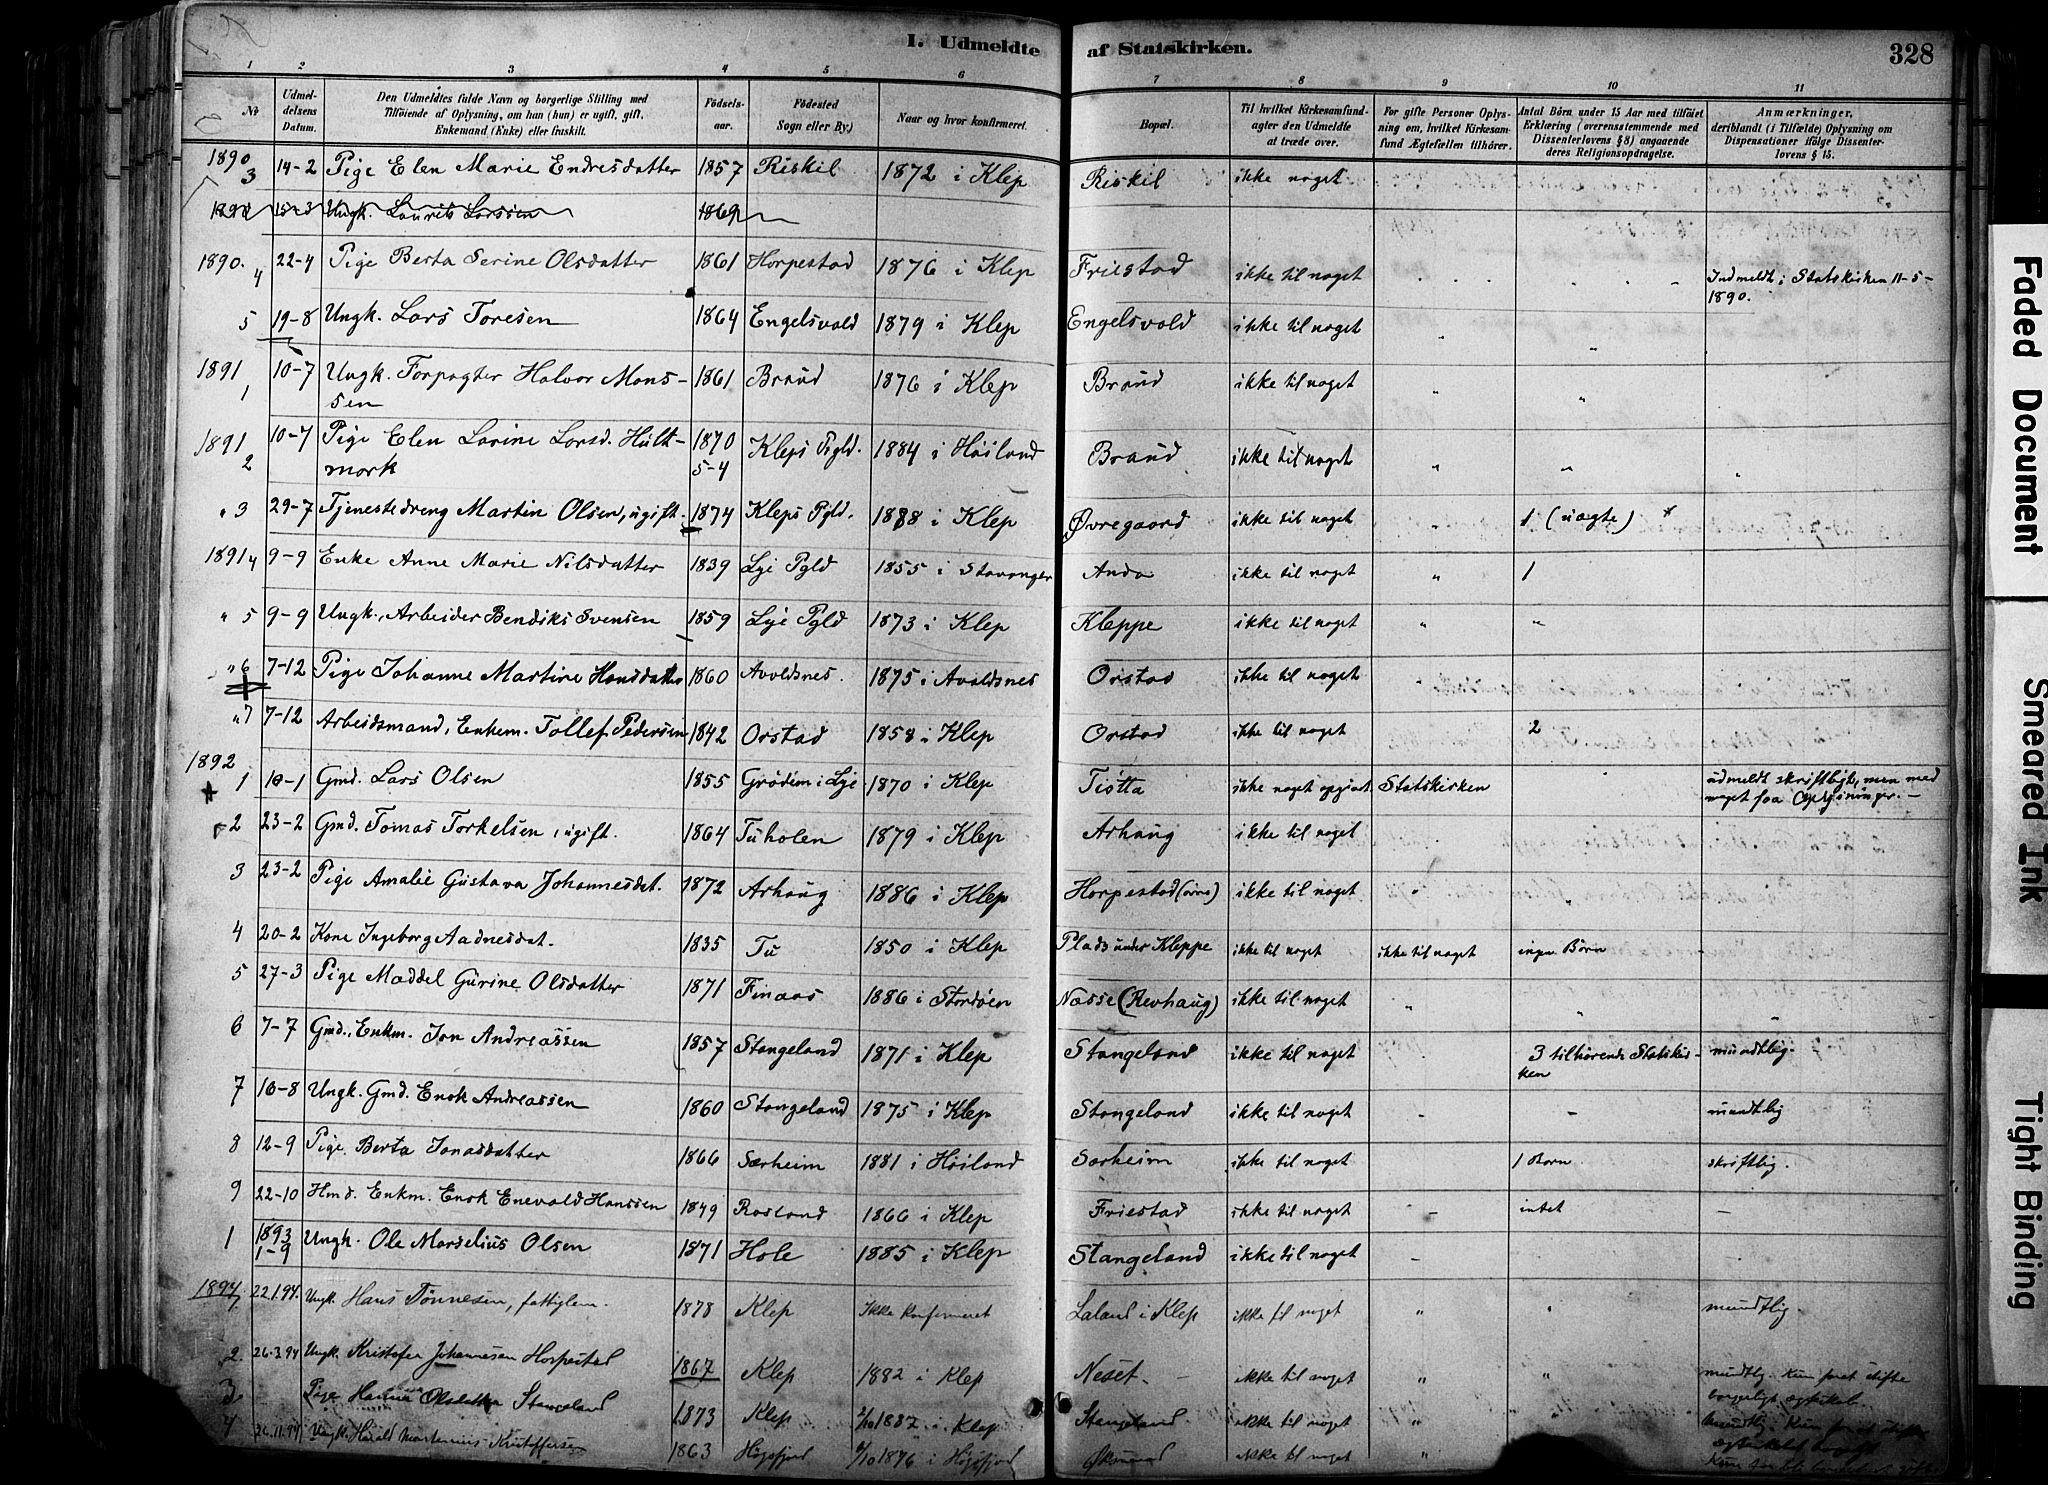 1. Udmeldte af Statskirken. 328
1 2 3 4 5 6 7 8 9 10 11
No Udmeldelsens Datum. Den Udmeldtes fulde Navn og borgerlige Stilling med Tilføiende af Oplysning, om han (hun) er ugift, gift, Enkemand (Enke) eller fraskilt. Fødselsaar. Fødested Sogn eller By.) Naar og hvor konfirmeret. Bopæl. Til hvilket Kirkesamfund agter den Udmeldte at træde over. For gifte Personer Oplysning om, hvilket Kirkesamfund Ægtefællen tilhører. Antal Børn under 15 Aar med tilføiet Erklæring (overensstemmende med Dissenterlovens § 8) angaaende deres Religionsopdragelse. Anmærkninger, deriblandt (i Tilfælde) Oplysning om Dispensationer ifølge Dissenterlovens § 15.
1890 3 14-2 Pige Elen Marie Endresdatter 1857 Riskil 1872 i Klep Riskil ikke noget
1891 15-3 Ungk. Laurits Larssen 1869
1890. 4 22-4 Pige Berta Serine Olsdatter 1861 Horpestad 1876 i Klep Friestad ikke til noget Indmeldt i Statskirken 11-5-1890.
5 19-8 Ungk. Lars Toresen 1864 Engelsvold 1879 i Klep Engelsvold ikke til noget "
1891 1 10-7 Ungk. Forpagter Halvor Monssen 1861 Braud 1876 i Klep Braud ikke til noget " "
1891 2 10-7 Pige Elen Larine Larsd. Hultmork 1870 5-4 Kleps Pgld. 1884 i Høiland Braud ikke til noget " " "
" 3 29-7 Tjenestedreng Martin Olsen, ugift. 1874 Kleps Pgld. 1888 i Klep Øvregaard ikke til noget " 1 (uægte)
1891 4 9-9 Enke Anne Marie Nilsdatter 1839 Lye Pgld 1855 i Stavanger Anda ikke til noget " 1
" 5 9-9 Ungk., Arbeider Bendiks Svensen 1859 Lye Pgld 1873 i Klep Kleppe ikke til noget " "
" 6 7-12 Pige Johanne Martine Hansdatter 1860 Avaldsnes. 1875 i Avaldsnes Orstad ikke til noget
" 7 7-12 Arbeidsmand, Enkem. Tollef Pedersen 1842 Orstad 1858 i Klep Orstad ikke til noget 2
1892 1 18-1 Gmd. Lars Olsen 1855 Grødem i Lye 1870 i Klep Tiøtta ikke noget opgivet Statskirken udmeldt skriftligt, men med meget faa Oplysninger. -
2 23-2 Gmd. Tomas Torkelsen, ugift. 1864 Tuholen 1879 i Klep Arhaug ikke til noget
3 23-2 Pige Amalie Gustava Johannesdat. 1872 Arhaug 1886 i Klep Horpestad ikke til noget "
4 20-2 Kone Ingeborg Aadnesdat. 1835 Tu 1850 i Klep Plads under Kleppe ikke til noget ikke til noget ingen Børn
5 27-3 Pige Maddel Gurine Olsdatter 1871 Finaas 1886 i Stordøen Næsse (Revhaug) ikke til noget " " "
6 7-7 Gmd., Enkm. Jon Andreassen 1857 Stangeland 1871 i Klep Stangeland ikke til noget 3 tilhørende Statskirken mundtlig.
7 10-8 Ungk. Gmd. Enok Andreassen 1860 Stangeland 1875 i Klep Stangeland ikke til noget - - mundtlig
8 12-9 Pige. Berta Jonasdatter 1866 Særheim 1881 i Høiland Særheim ikke til noget 1 Barn skriftlig.
9 22-10 Hmd. Enkm. Enok Enevald Hanssen 1849 Rosland 1866 i Klep Friestad ikke til noget - intet -
1 1893 1-9 Ungk. Ole Marselius Olsen 1871 Hole 1885 i Klep Stangeland ikke til noget -
1894 1. 22.1.94. Ungk. Hans Tønnesen, fattiglem. 1878 Klep Ikke konfirmeret Laland i Klep ikke til noget " " mundtlig.
2. 26.3.94 Ungk. Kristofer Johannesen Horpestad 1867 Klep 1882 i Klep Neset. - ikke til noget " " mundtlig. Kun foret stifte borgerligt ægteskab.
3. Pige Hanna Olsdatter Stangeland 1873 Klep 1887 i Klep Stangeland ikke til noget " Mundtlig. Kun for at stifte ægteskab
4 26.11.94 Ungk. Harald Martenius Kristoffersen 1863 Høgsfjord 1876 i Høgsfjord ikke til noget "
Faded Document
Smeared Ink
Tight Binding